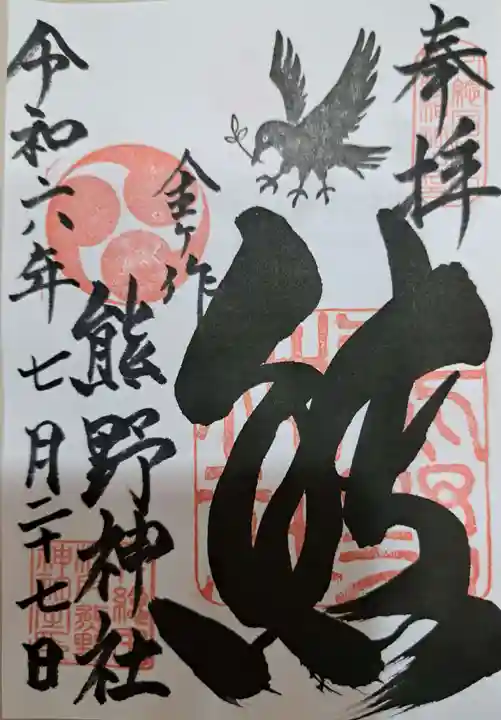 奉拝
熊
金ヶ作
熊野神社
令和六年七月二十七日